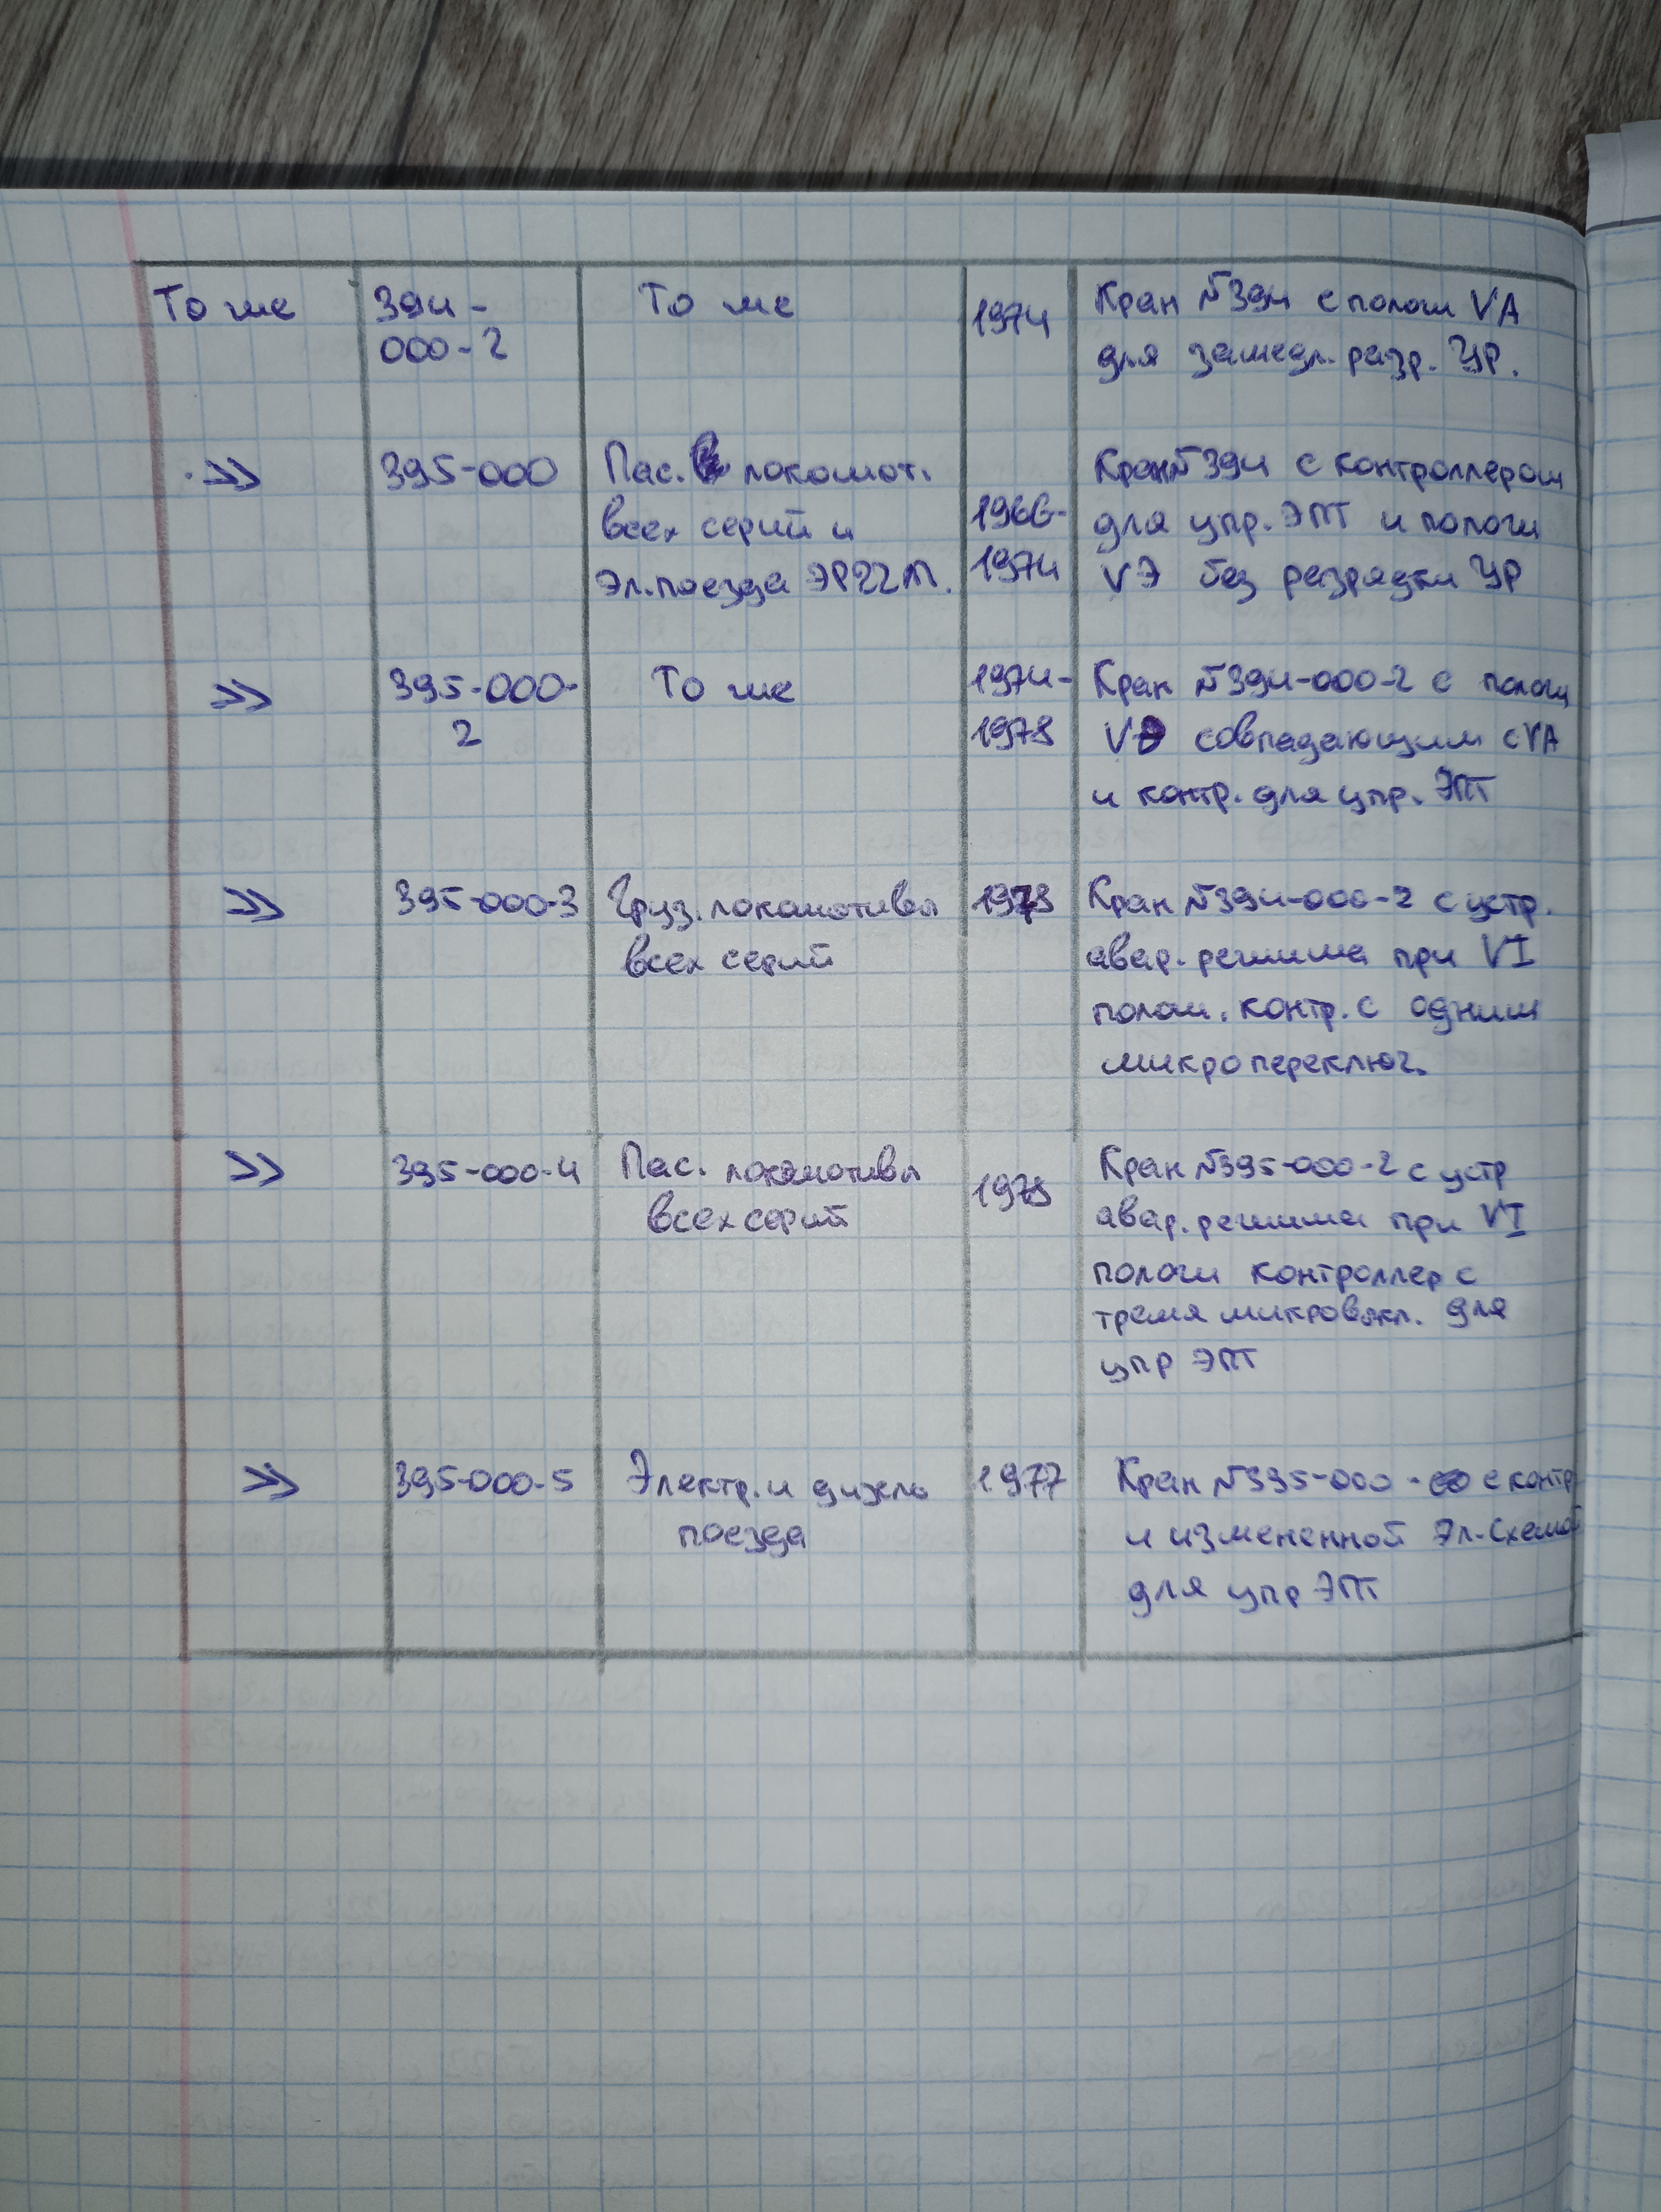 То же 394-000-2 То же 1974 Кран №394 с полож VА
для замедл. разр. УР.
>> 395-000 Пас. локомот. Кран №394 с контроллером
всех серий и 1966- для упр. ЭПТ и полож
Эл.поезда ЭР22М. 1974 VЭ без разрядки УР
>> 395-000-2 То же 1974- Кран №394-000-2 с полож
1978 VЭ совпадающим с VА
и контр. для упр. ЭПТ
>> 395-000-3 Груз. локомотивы 1978 Кран №394-000-2 с устр.
всех серий авар. режима при VI
полож. контр. с одним
микропереключ.
>> 395-000-4 Пас. локомотивы Кран №395-000-2 с устр
всех серий 1978 авар. режима при VI
полож контроллер с
тремя микровыкл. для
упр ЭПТ
>> 395-000-5 Электр. и дизель 1977 Кран №395-000- с контр
поезда и измененной Эл-Схемой
для упр ЭПТ